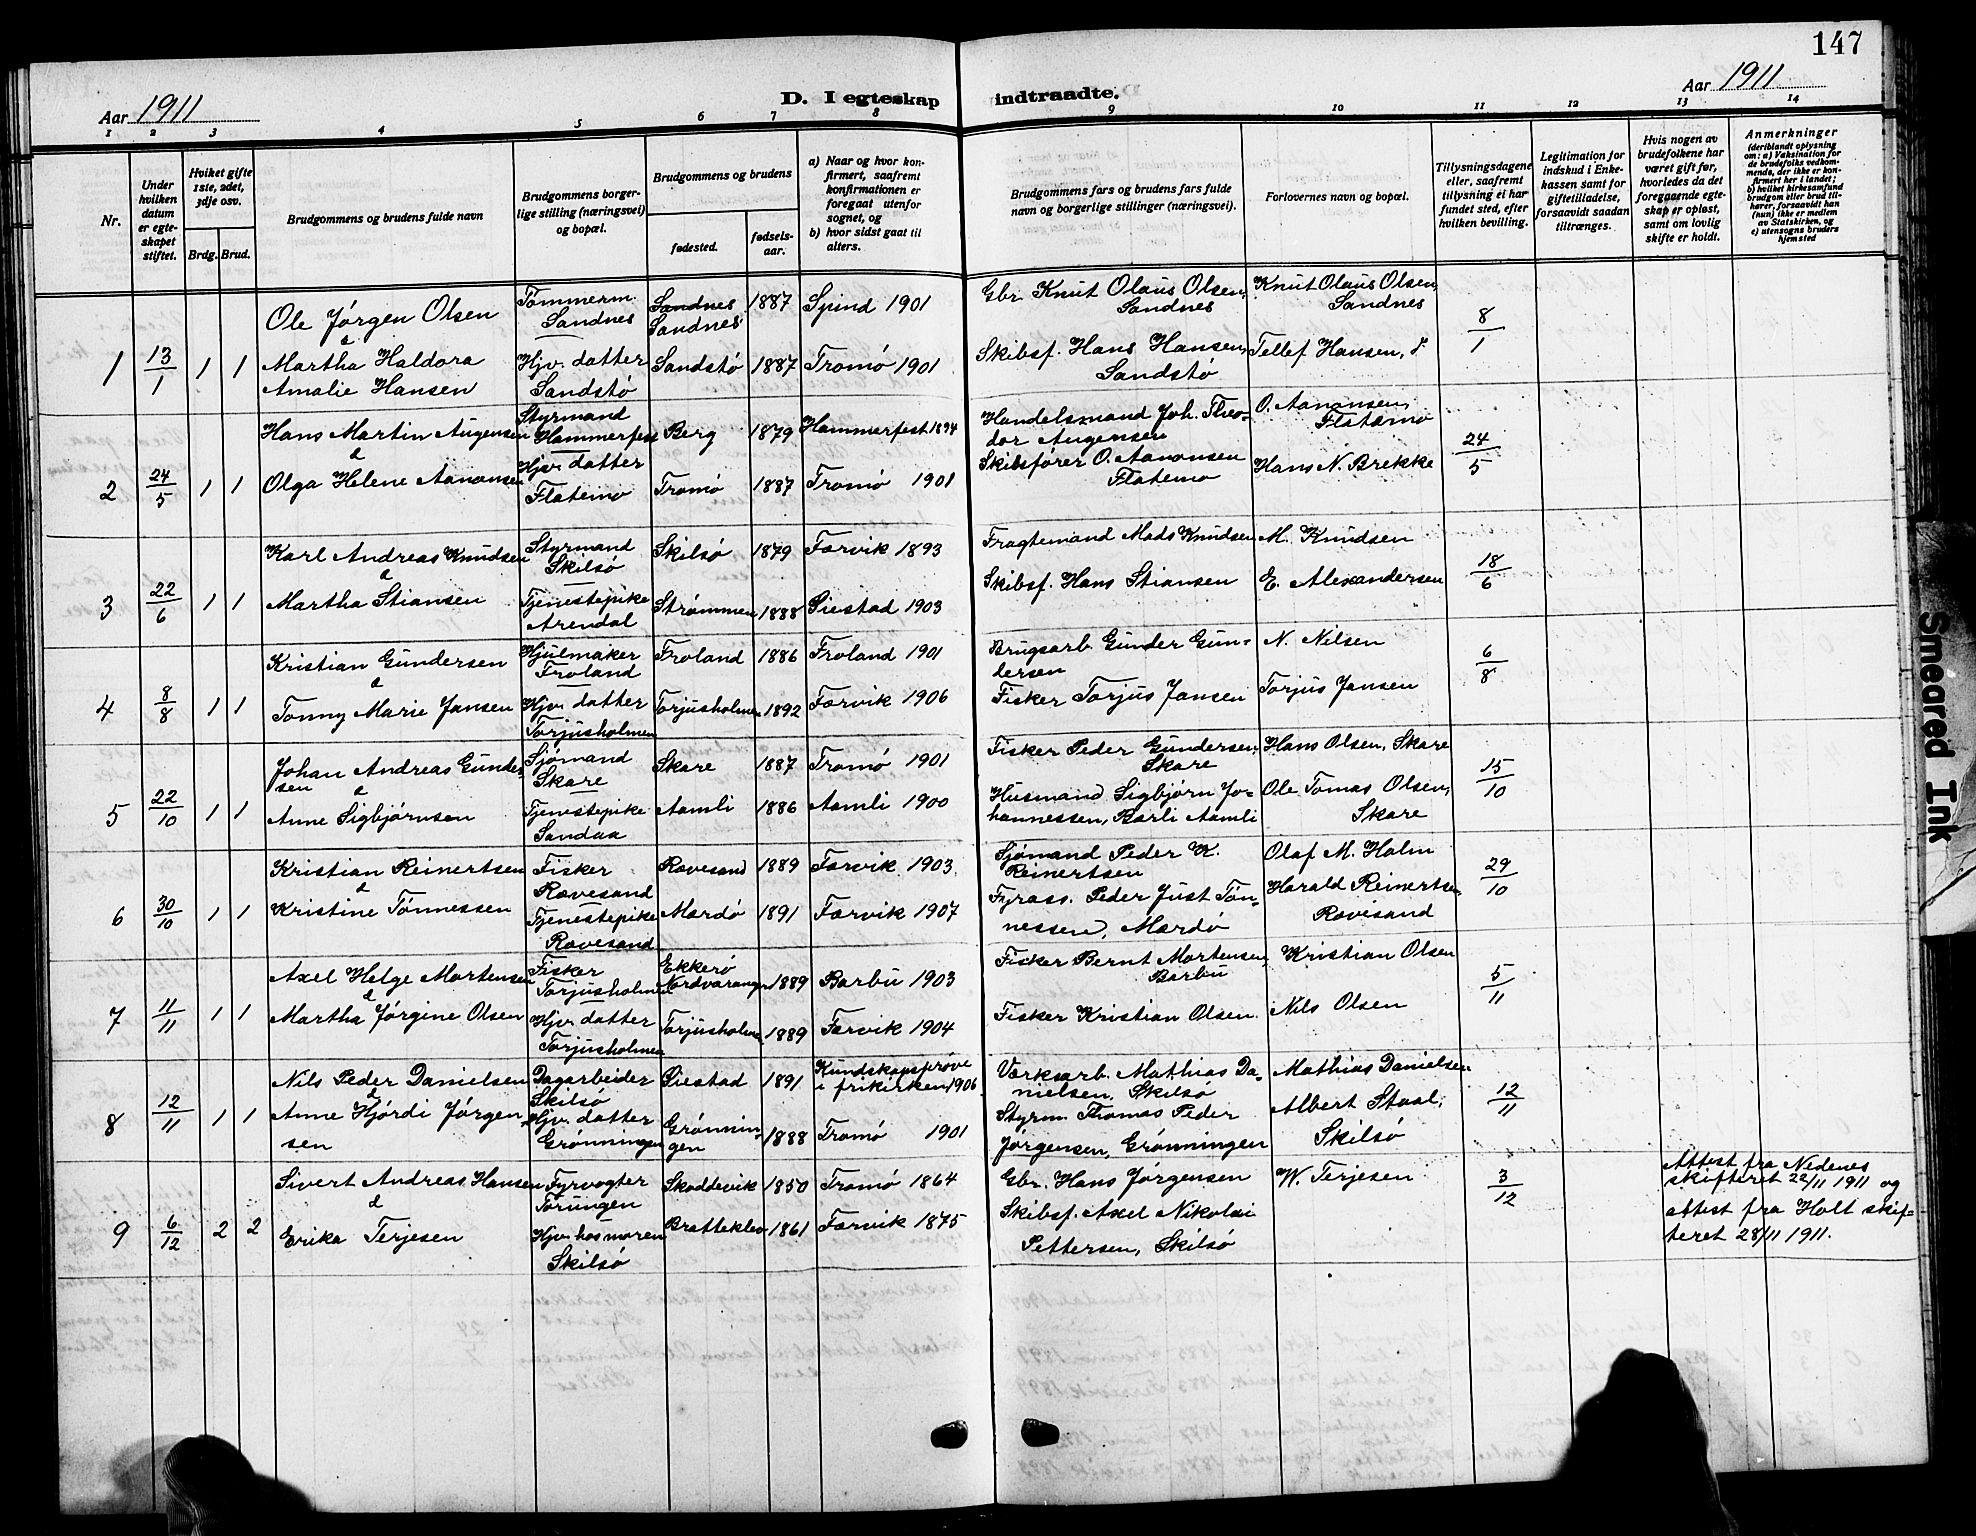 147
Aar 1911
D. I egteskap indtraadte.
Aar 1911
1 2 3 4 5 6 7 8 9 10 11 12 13 14
Nr.
Under hvilken datum er egteskapet stiftet.
Hviket gifte 1ste, 2det, 3dje osv.
Brdg. Brud.
Brudgommens og brudens fulde navn
Brudgommens borgerlige stilling (næringsvei) og bopæl.
Brudgommens og brudens
fødested.
fødselsaar.
a) Naar og hvor konfirmert, saafremt konfirmationen er foregaat utenfor sognet, og
b) hvor sidst gaat til alters.
Brudgommens fars og brudens fars fulde navn og borgerlige stillinger (næringsvei).
Forlovernes navn og bopæl.
Tillysningsdagene eller, saafremt tillysning ei har fundet sted, efter hvilken bevilling.
Legitimation for indskud i Enkekassen samt for giftetilladelse, forsaavidt saadan tiltrænges.
Hvis nogen av brudefolkene har været gift før, hvorledes da det foregaaende egteskap er opløst, samt om lovlig skifte er holdt.
Anmerkninger (deriblandt oplysning om: a) Vaksination for de brudefolks vedkommende, der ikke er konfirmert her i landet; b) hvilket kirkesamfund brudgom eller brud tilhører, forsaavidt han (hun) ikke er medlem av Statskirken, og c) utensogns bruders hjemsted
1 13/1 1 1
Ole Jørgen Olsen
&
Martha Haldora
Amalie Hansen
Tømmerm.
Sandnes
Hjv. datter
Sandstø
Sandnes
Sandnes 1887 Spind 1901
Sandstø 1887 Tromø 1901
Gbr. Knut Olaus Olsen,
Sandnes
Skibsf. Hans Hansen,
Sandstø
Knut Olaus Olsen,
Sandnes
Tellef Hansen,
8/1
2 24/5 1 1
Hans Martin Augensen
&
Olga Helene Aanonsen
Styrmand
Hammerfest
Hjv. datter
Flatemo
Berg 1879 Hammerfest 1894
Tromø 1887 Tromø 1901
Handelsmand Joh. Theo-
dor Augensen
Skibsfører O. Aanonsen
Flatemo
O. Aanonsen,
Flatemo
Hans N. Brekke
24/5
3 22/6 1 1
Karl Andreas Knudsen
&
Martha Stiansen
Styrmand
Skilsø
Tjenestepike
Arendal
Skilsø 1879 Færvik 1893
Strømmen 1888 Øiestad 1903
Fragtemand Mads Knudsen
Skibsf. Hans Stiansen
M. Knudsen
E. Alexandersen
18/6
4 8/8 1 1
Kristian Gundersen
&
Tonny Marie Jansen
Hjulmaker
Froland
Hjv. datter
Torjusholmen
Froland 1886 Froland 1901
Torjusholmen 1892 Færvik 1906
Brugsarb. Gunder Gun-
dersen
Fisker Torjus Jansen
N. Nilsen
Torjus Jansen
6/8
5 22/10 1 1
Johan Andreas Gunder-
sen &
Anne Sigbjørnsen
Sjømand
Skare
Tjenestepike
Sandaa
Skare 1887 Tromø 1901
Aamli 1886 Aamli 1900
Fisker Peder Gundersen,
Skare
Husmand Sigbjørn Jo-
hannessen, Barli Aamli
Hans Olsen, Skare
Ole Tomas Olsen,
Skare
15/10
6 30/10 1 1
Kristian Reinertsen
&
Kristine Tønnessen
Fisker
Rævesand
Tjenestepike
Rævesand
Rævesand 1889 Færvik 1903.
Mærdø 1891 Færvik 1907
Sjømand Peder K.
Reinertsen
Fyrass. Peder Just Tøn-
nessen, Mærdø
Olaf M. Holm
Harald Reinertsen
Rævesand
29/10
7 11/11 1 1
Axel Helge Mortensen
&
Martha Jørgine Olsen
Fisker
Torjusholmen
Hjv. datter
Torjusholmen
Ekkerø
Nordvaranger 1889 Barbu 1903
Torjusholmen 1889 Færvik 1904
Fisker Bernt Mortensen,
Barbu
Fisker Kristian Olsen.
Kristian Olsen
Nils Olsen
5/11
8 12/11 1 1
Nils Peder Danielsen
&
Anne Hjørdi Jørgen-
sen
Dagarbeider
Skilsø
Hjv. datter
Grønningen
Øiestad 1891 Kundskapsprøve
i frikirken 1906
Grønnin-
gen 1888 Tromø 1901
Værksarb. Mathias Da-
nielsen, Skilsø
Styrm. Thomas Peder
Jørgensen, Grønningen
Mathias Danielsen
Albert Staal,
Skilsø
12/11
9 6/12 2 2
Sivert Andreas Hansen
&
Erika Terjesen
Fyrvogter
Torungen
Hjv. hos moren
Skilsø
Skoddevik 1850 Tromø 1864
Bratteklev 1861 Færvik 1875
Gbr. Hans Jørgensen
Skibsf. Axel Nikolai
Pettersen, Skilsø
W. Terjesen
3/12
Attest fra Nedenes
skifteret 22/11 1911 og
attest fra Holt skif-
teret 28/11 1911.
Smeared Ink